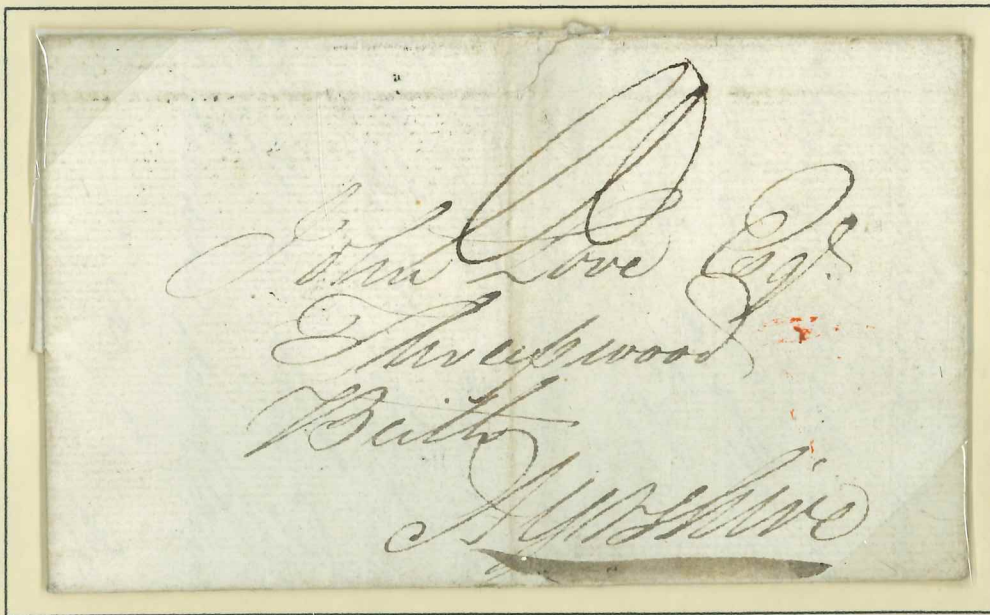 John Love Esqr.
Threepwood
Beith
Ayrshire